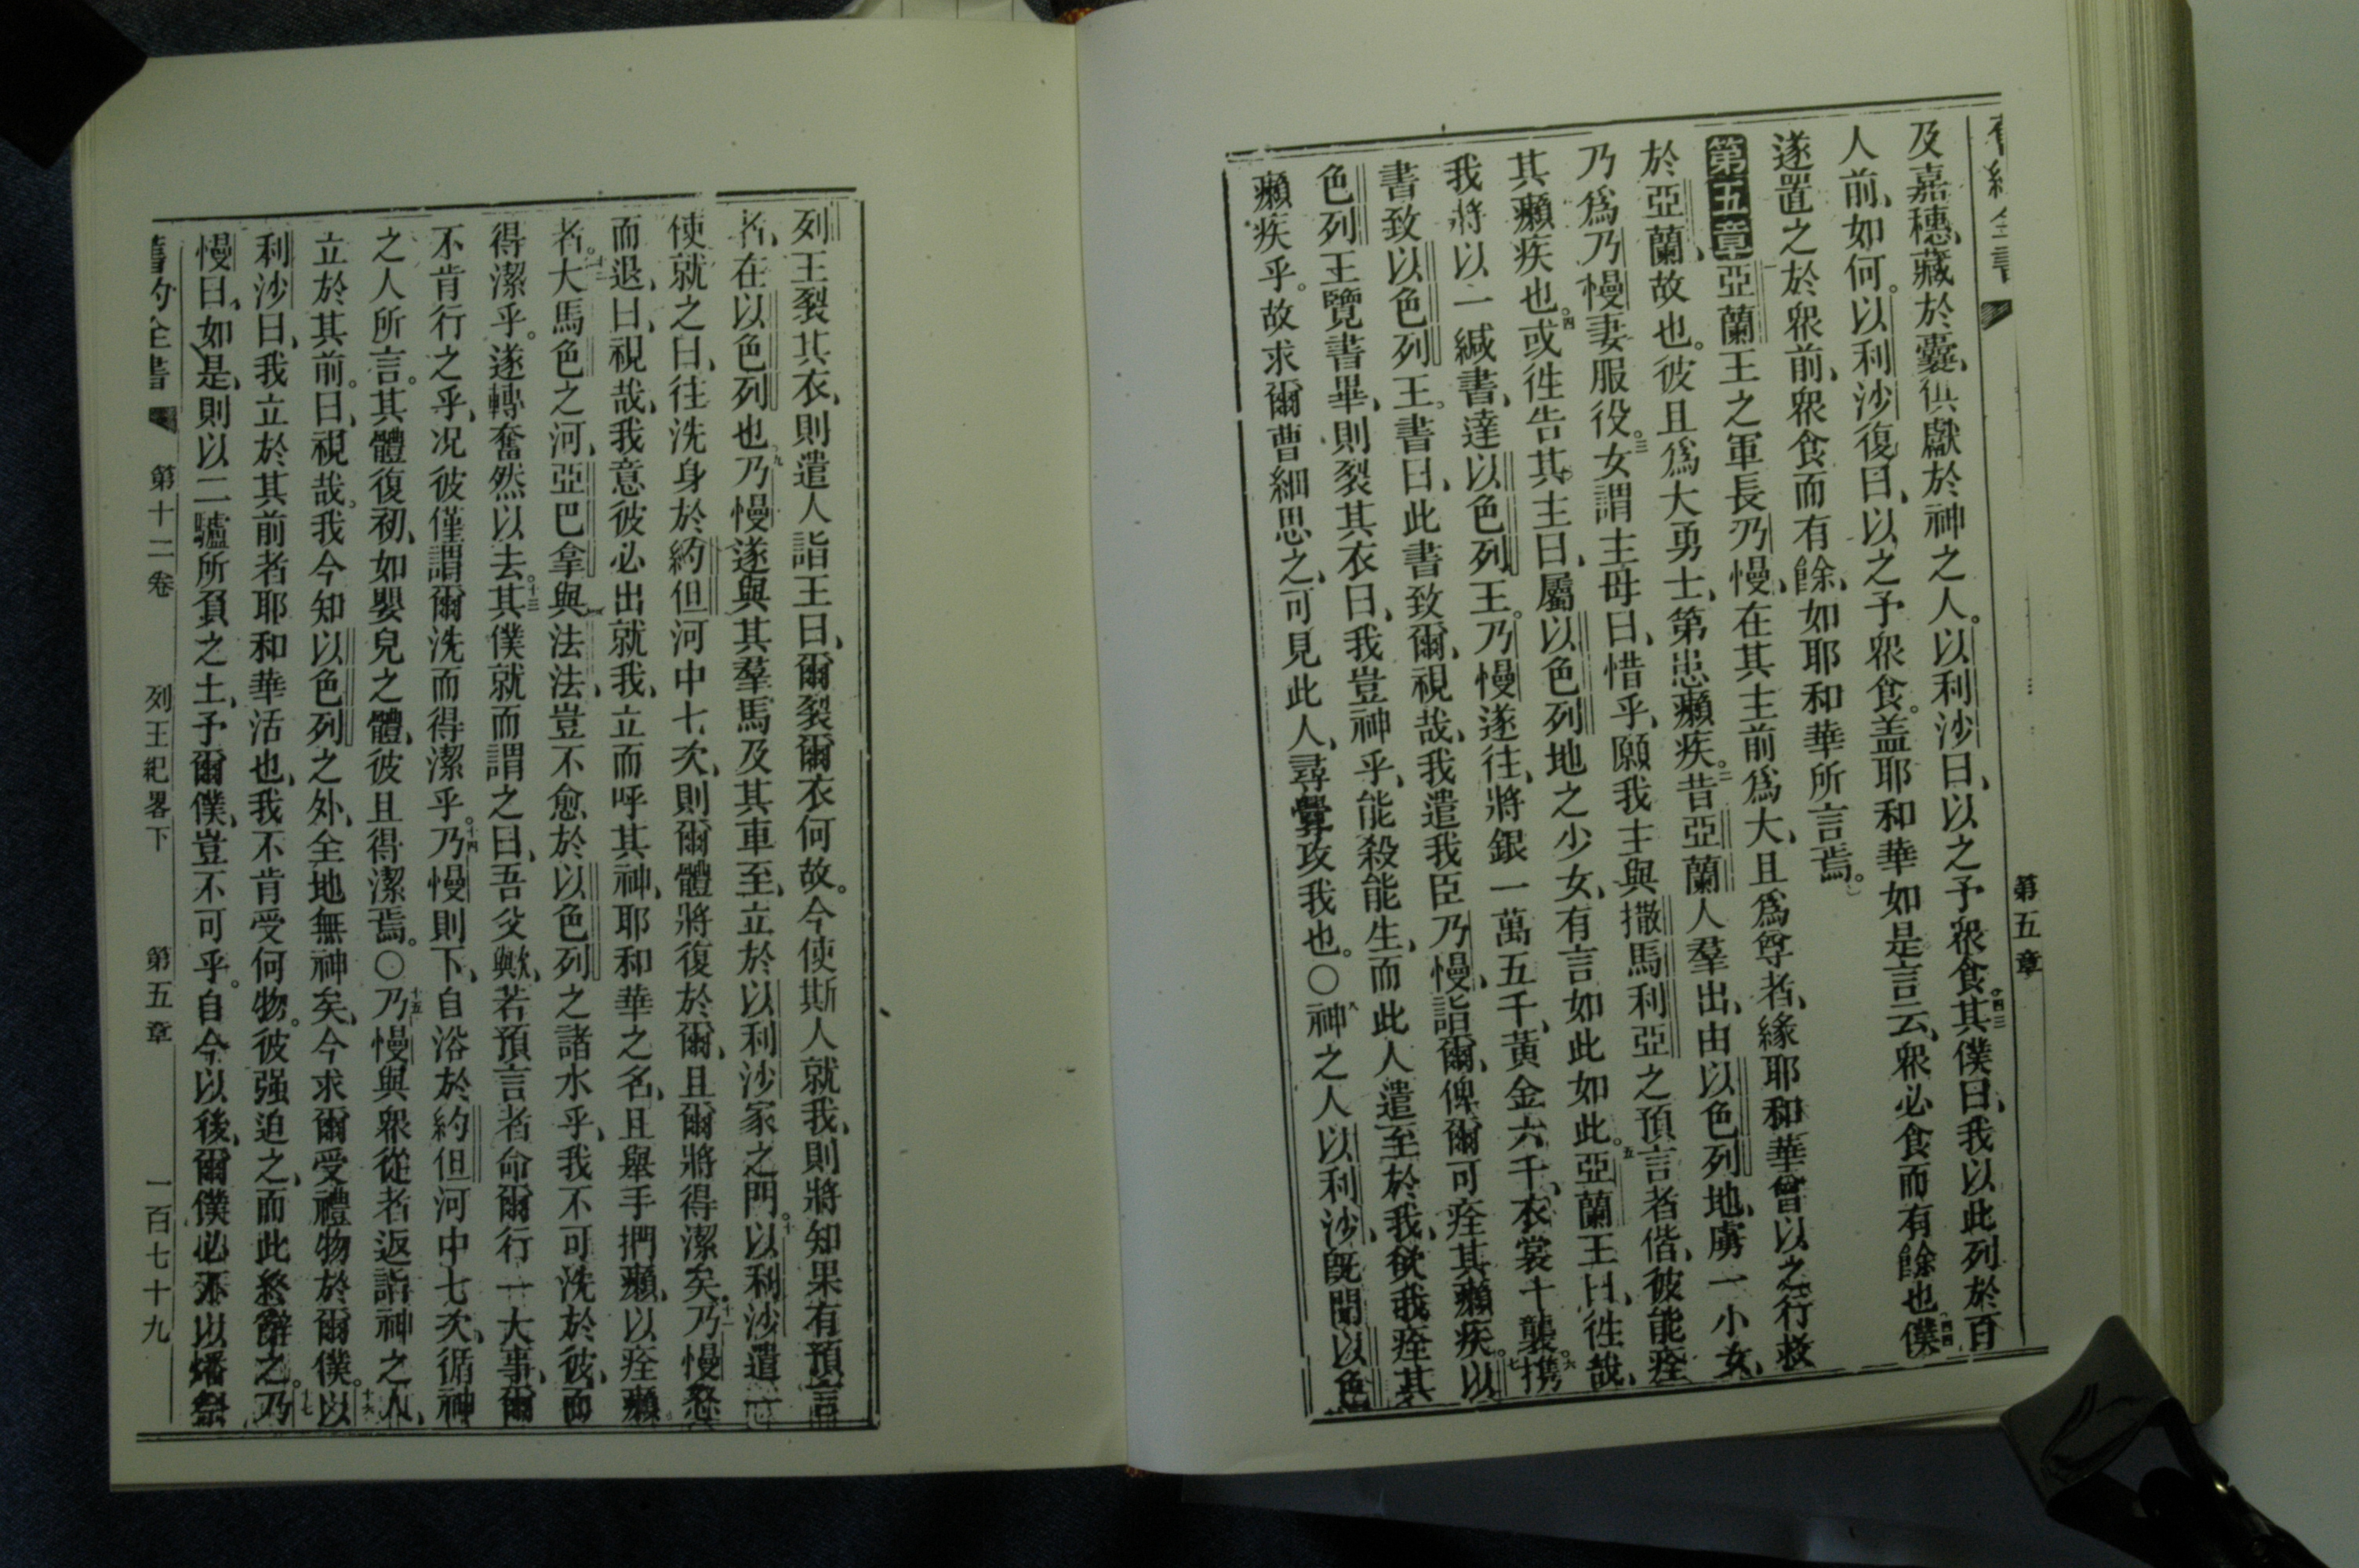 第五章
及嘉穗、藏於囊、俱獻於神之人。以利沙曰、以之予眾食。四三其僕曰、我以此列於百
人前、如何。以利沙復曰、以之予眾食。盖耶和華如是言云、眾必食而有餘也。四四僕
遂置之於眾前、眾食而有餘、如耶和華所言焉。
第五章 一亞蘭王之軍長乃慢、在其主前爲大、且爲尊者、緣耶和華曾以之行救
於亞蘭故也。彼且爲大勇士、第患癩疾。二昔亞蘭人羣出、由以色列地、虜一小女、
乃爲乃慢妻服役。三女謂主母曰、惜乎、願我主與撒馬利亞之預言者偕、彼能痊
其癩疾也。四或徃告其主曰、屬以色列地之少女、有言如此如此。五亞蘭王曰、徃哉、
我將以一緘書、達以色列王。乃慢遂往、將銀一萬五千、黃金六千、衣裳十襲。六攜
書致以色列王。書曰、此書致爾、視哉、我遣我臣乃慢詣爾、俾爾可痊其癩疾。七以
色列王覽書畢、則裂其衣曰、我豈神乎、能殺能生、而此人遣至於我、欲我痊其
癩疾乎。故求爾曹細思之、可見此人、尋釁攻我也。○八神之人以利沙、旣聞以色
列王裂其衣、則遣人詣王曰、爾裂爾衣何故。今使斯人就我、則將知果有預言
者、在以色列也。九乃慢遂與其羣馬及其車至、立於以利沙家之門。十以利沙遣一
使就之曰、往洗身於約但河中七次、則爾體將復於爾、且爾將得潔矣。十一乃慢怒
而退、曰、視哉、我意彼必出就我、立而呼其神、耶和華之名、且舉手捫癩、以痊癩
者。十二大馬色之河、亞巴拿與法法、豈不愈於以色列之諸水乎、我不可洗於彼、而
得潔乎。遂轉奮然以去。十三其僕就而謂之曰、吾父歟、若預言者命爾行一大事、爾
不肯行之乎、况彼僅謂爾洗而得潔乎。十四乃慢則下、自浴於約但河中七次、循神
之人所言。其體復初、如嬰兒之體、彼且得潔焉。○十五乃慢與眾從者返詣神之人、
立於其前。曰、視哉。我今知以色列之外、全地無神矣、今求爾受禮物於爾僕。十六以
利沙曰、我立於其前者耶和華活也、我不肯受何物。彼强迫之、而此終辭之。十七乃
慢曰、如是、則以二驢所負之土、予爾僕、豈不可乎。自今以後、爾僕必不以燔祭
舊約全書 第十二卷 列王紀畧下 第五章 一百七十九